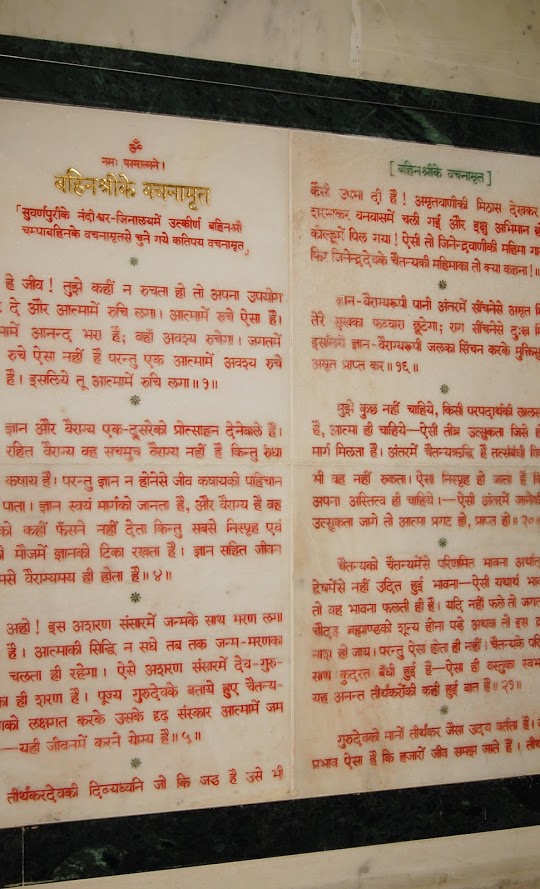 ॐ
नमः परमात्मने।
बहिनश्रीके वचनामृत
「सुवर्णपुरीके नंदीश्वर-जिनालयमें उत्कीर्ण बहिनश्री
चम्पाबहिनके वचनामृतसे चुने गये कतिपय वचनामृत」
हे जीव! तुझे कहीं न रुचता हो तो अपना उपयोग
दे और आत्मामें रुचि लगा। आत्मामें रुचे ऐसा है।
में आनन्द भरा है; वहाँ अवश्य रुचेगा। जगतमें
रुचे ऐसा नहीं है परन्तु एक आत्मामें अवश्य रुचे
है। इसलिये तू आत्मामें रुचि लगा॥१॥
ज्ञान और वैराग्य एक-दूसरेको प्रोत्साहन देनेवाले हैं।
रहित वैराग्य वह सचमुच वैराग्य नहीं है किन्तु रुंधा
कषाय है। परन्तु ज्ञान न होनेसे जीव कषायको पहिचान
पाता। ज्ञान स्वयं मार्गको जानता है, और वैराग्य है वह
को कहीं फँसने नहीं देता किन्तु सबसे निस्पृह एवं
मौजमें ज्ञानको टिका रखता है। ज्ञान सहित जीवन
से वैराग्यमय ही होता है॥४॥
अहो! इस अशरण संसारमें जन्मके साथ मरण लगा
है। आत्माकी सिद्धि न सधे तब तक जन्म-मरणका
चलता ही रहेगा। ऐसे अशरण संसारमें देव-गुरु-
का ही शरण है। पूज्य गुरुदेवके बताये हुए चैतन्य-
को लक्षगत करके उसके दृढ़ संस्कार आत्मामें जम
—यही जीवनमें करने योग्य है॥५॥
तीर्थंकरदेवकी दिव्यध्वनि जो कि जड़ है उसे भी
[बहिनश्रीके वचनामृत]
कैसी उपमा दी है! अमृतवाणीकी मिठास देखकर
शरमाकर वनवासमें चली गई और इक्षु अभिमान
कोल्हूमें पिल गया! ऐसी तो जिनेन्द्रवाणीकी महिमा
फिर जिनेन्द्रदेवके चैतन्यकी महिमाका तो क्या कहना!॥
ज्ञान-वैराग्यरूपी पानी अंतरमें सींचनेसे अमृत
तेरे सुखका फव्वारा छूटेगा; राग सींचनेसे दुःख
इसलिये ज्ञान-वैराग्यरूपी जलका सिंचन करके मुक्तिसुख
अमृत प्राप्त कर॥१६॥
मुझे कुछ नहीं चाहिये, किसी परपदार्थकी लालसा
है, आत्मा ही चाहिये—ऐसी तीव्र उत्सुकता जिसे
मार्ग मिलता है। अंतरमें चैतन्यऋद्धि है तत्संबंधी
भी वह नहीं रुकता। ऐसा निस्पृह हो जाता है
अपना अस्तित्व ही चाहिये।—ऐसी अंतरमें जानेकी
उत्सुकता जागे तो आत्मा प्रगट हो, प्राप्त हो॥२०॥
चैतन्यको चैतन्यमेंसे परिणमित भावना अर्थात्
द्वेषमेंसे नहीं उदित हुई भावना—ऐसी यथार्थ
तो वह भावना फलती ही है। यदि नहीं फले तो जगत
चौदह ब्रह्माण्डको शून्य होना पड़े अथवा तो इस
नाश हो जाय। परन्तु ऐसा होता ही नहीं। चैतन्यके
साथ कुदरत बँधी हुई है—ऐसा ही वस्तुका स्वभाव
यह अनन्त तीर्थंकरोंकी कही हुई बात है॥२१॥
गुरुदेवको मानों तीर्थंकर जैसा उदय वर्तता है।
प्रभाव ऐसा है कि हजारों जीव समझ जाते हैं।